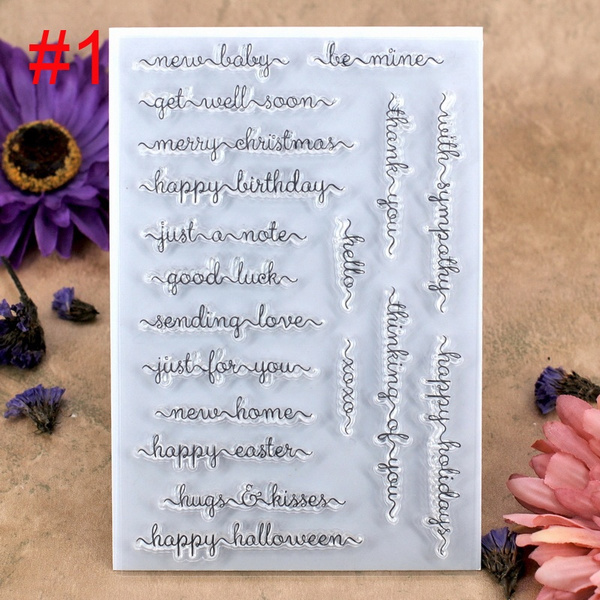 #1
new baby
be mine
get well soon
merry christmas
happy birthday
just a note
good luck
sending love
just for you
new home
happy easter
hugs & kisses
happy halloween
hello
xoxo
thank you
thinking of you
with sympathy
happy holidays